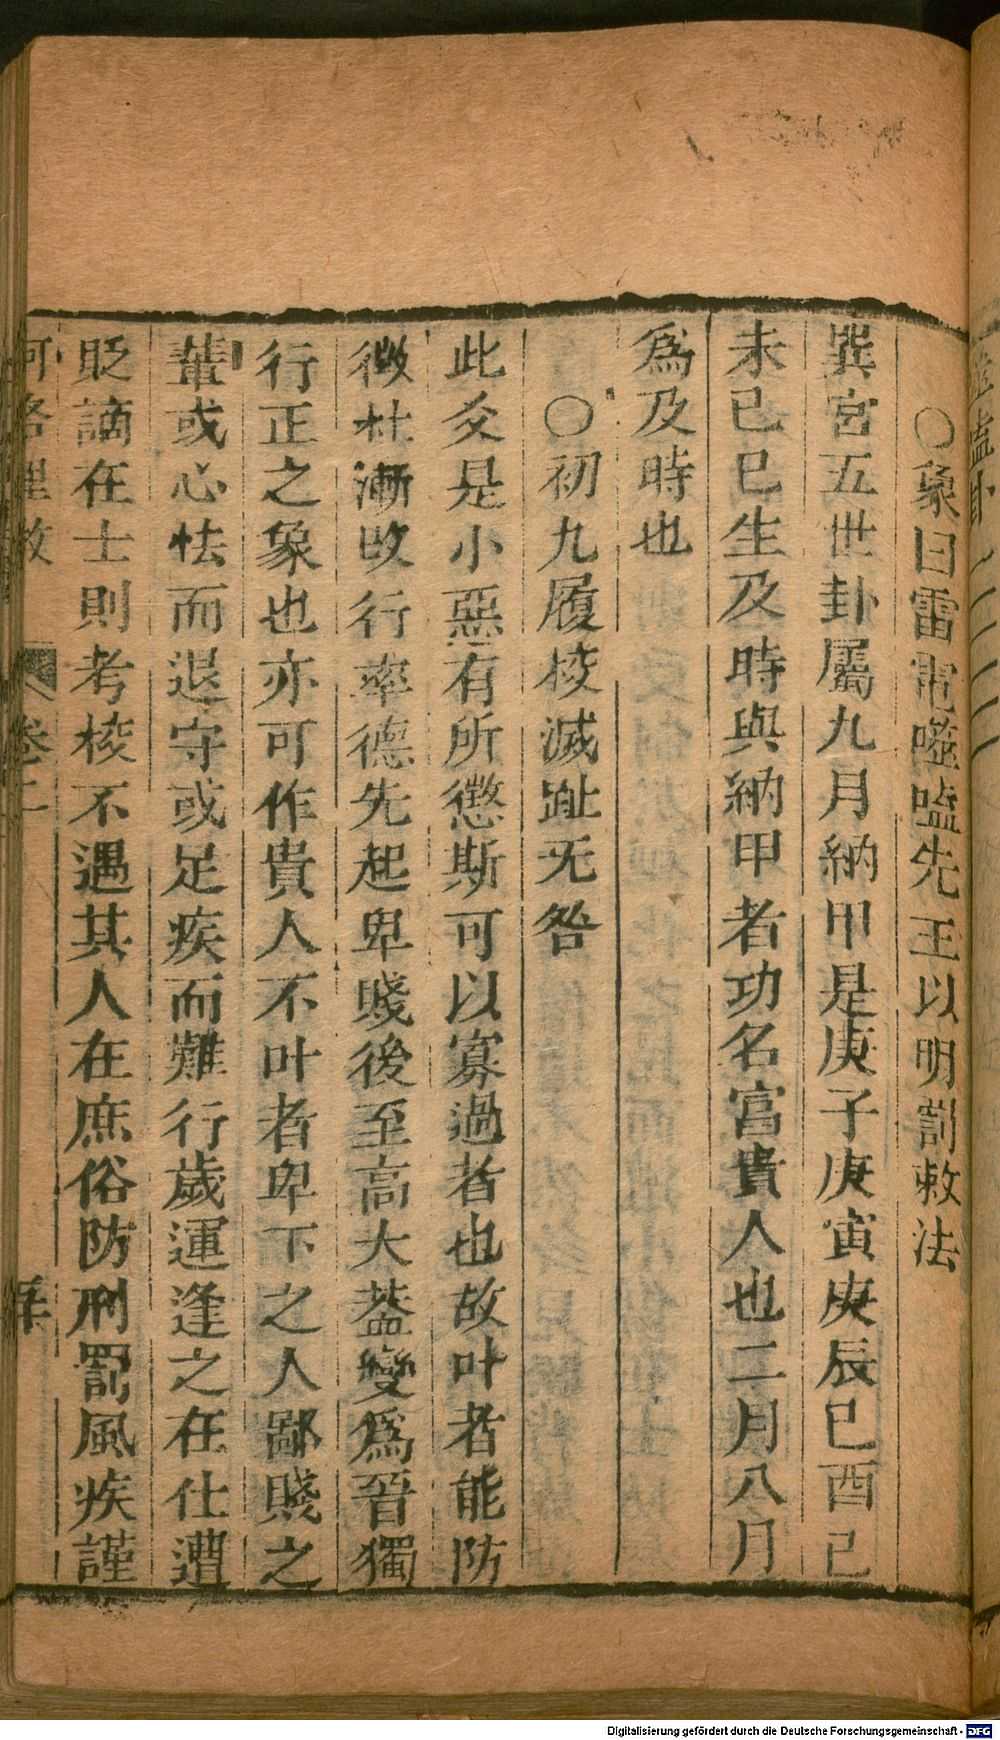 ○象曰雷電噬嗑先王以明罰敕法
巽宮五世卦屬九月納甲是庚子庚寅庚辰己酉己
未己巳生及時與納甲者功名富貴人也二月八月
爲及時也
○初九履校滅趾无咎
此爻是小惡有所懲斯可以寡過者也故叶者能防
微杜漸改行率德先起卑賤後至高大葢變爲晉獨
行正之象也亦可作貴人不叶者卑下之人鄙賤之
輩或心怯而退守或足疾而難行歲運逢之在仕遭
貶謫在士則考校不遇其人在庶俗防刑罰風疾謹
河洛理數 卷二
Digitalisierung gefördert durch die Deutsche Forschungsgemeinschaft - DFG